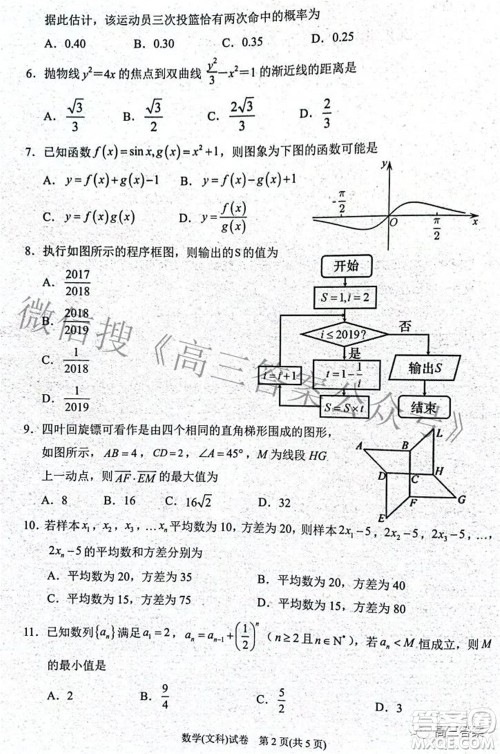 据此估计，该运动员三次投篮恰有两次命中的概率为
A．0.40 B．0.30 C．0.35 D．0.25
6．抛物线 y²=4x 的焦点到双曲线 y²/3－x²=1 的渐近线的距离是
A．√3/3 B．√3/2 C．2√3/3 D．2/3
7．已知函数 f(x)=sinx,g(x)=x²+1，则图象为下图的函数可能是
A．y=f(x)+g(x)-1 B．y=f(x)-g(x)+1
C．y=f(x)g(x) D．y=f(x)/g(x)
y
-π/2 O π/2 x
8．执行如图所示的程序框图，则输出的S的值为
A．2017/2018
B．2018/2019
C．1/2018
D．1/2019
开始
S=1,i=2
i≤2019?
否
是
i=i+1
t=1-1/i
S=S×t
输出S
结束
9．四叶回旋镖可看作是由四个相同的直角梯形围成的图形，
如图所示，AB=4，CD=2，∠A=45°，M为线段HG
上一动点，则AF·EM的最大值为
A．8 B．16 C．16√2 D．32
A B L D C H E F G
10．若样本x₁，x₂，x₃，…xₙ平均数为10，方差为20，则样本2x₁-5，2x₂-5，2x₃-5，…，
2xₙ-5的平均数和方差分别为
A．平均数为20，方差为35 B．平均数为20，方差为40
C．平均数为15，方差为75 D．平均数为15，方差为80
11．已知数列{aₙ}满足a₁=2，aₙ=aₙ₋₁+(1/2)ⁿ（n≥2且n∈N*），若aₙ<M恒成立，则M
的最小值是
A．2 B．9/4 C．5/2 D．3
数学(文科)试卷 第2页(共5页)
微信搜《高三答案公众号》
高三答案